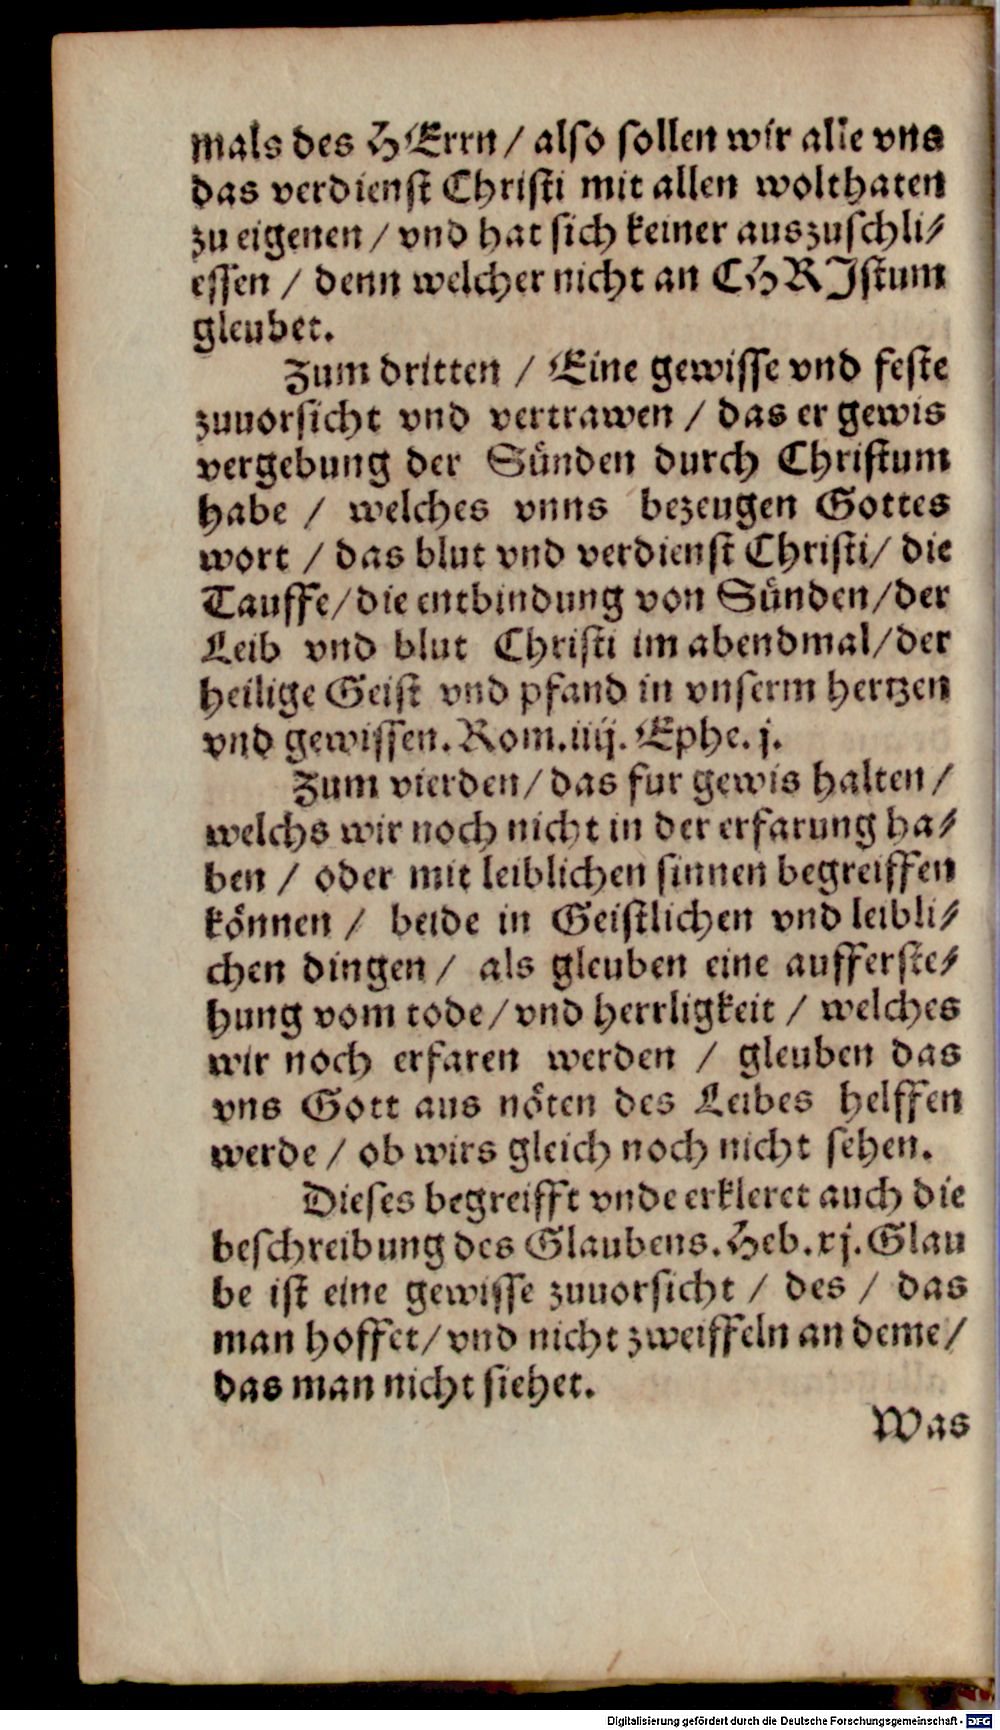 mals des HErrn / also sollen wir alle vns
das verdienst Christi mit allen wolthaten
zu eigenen / vnd hat sich keiner auszuschli⸗
essen / denn welcher nicht an CHRJstum
gleubet.
Zum dritten / Eine gewisse vnd feste
zuuorsicht vnd vertrawen / das er gewis
vergebung der Sünden durch Christum
habe / welches vnns bezeugen Gottes
wort / das blut vnd verdienst Christi / die
Tauffe / die entbindung von Sünden / der
Leib vnd blut Christi im abendmal / der
heilige Geist vnd pfand in vnserm hertzen
vnd gewissen. Rom. iiij. Ephe. j.
Zum vierden / das fur gewis halten /
welchs wir noch nicht in der erfarung ha⸗
ben / oder mit leiblichen sinnen begreiffen
können / beide in Geistlichen vnd leibli⸗
chen dingen / als gleuben eine aufferste⸗
hung vom tode / vnd herrligkeit / welches
wir noch erfaren werden / gleuben das
vns Gott aus nöten des Leibes helffen
werde / ob wirs gleich noch nicht sehen.
Dieses begreifft vnde erkleret auch die
beschreibung des Glaubens. Heb. xj. Glau
be ist eine gewisse zuuorsicht / des / das
man hoffet / vnd nicht zweiffeln an deme /
das man nicht siehet.
Was
Digitalisierung gefördert durch die Deutsche Forschungsgemeinschaft - DFG